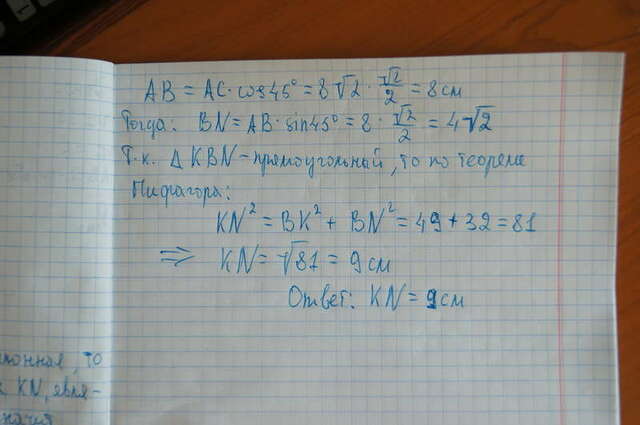 AB = AC · cos45° = 8√2 · √2/2 = 8см
Тогда: BN = AB · sin45° = 8 · √2/2 = 4√2
Т.к. Δ KBN – прямоугольный, то по теореме
Пифагора:
KN² = BK² + BN² = 49 + 32 = 81
⇒ KN = √81 = 9 см
Ответ: KN = 9см
то
KN, явля-